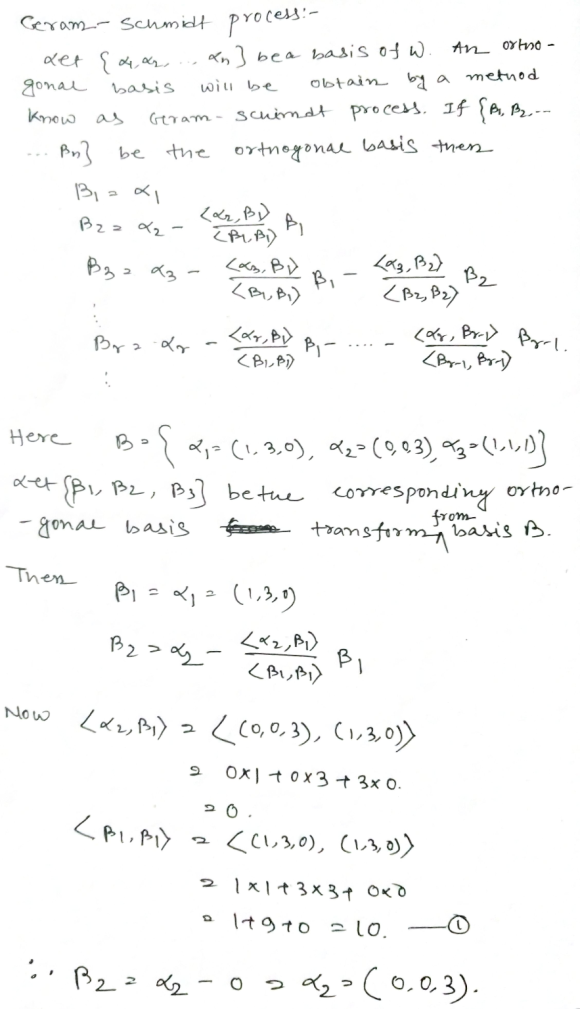 Geram - Schmidt process:-
Let {α1, α2, ... αn} be a basis of W. An ortho-
gonal basis will be obtain by a method
know as Gram - Schimdt process. If {β1, β2, ...
... βn} be the orthogonal basis then
β1 = α1
β2 = α2 - <α2, β1>/<β1, β1> β1
β3 = α3 - <α3, β1>/<β1, β1> β1 - <α3, β2>/<β2, β2> β2
⋮
βr = αr - <αr, β1>/<β1, β1> β1 - .... - <αr, βr-1>/<βr-1, βr-1> βr-1.
⋮
Here B = { α1 = (1, 3, 0), α2 = (0, 0, 3), α3 = (1, 1, 1)}
Let {β1, β2, β3} be the corresponding ortho-
-gonal basis transform from basis B.
Then β1 = α1 = (1, 3, 0)
β2 = α2 - <α2, β1>/<β1, β1> β1
Now <α2, β1> = <(0, 0, 3), (1, 3, 0)>
= 0x1 + 0x3 + 3x0.
= 0.
<β1, β1> = <(1, 3, 0), (1, 3, 0)>
= 1x1 + 3x3 + 0x0
= 1+9+0 = 10. —①
∴ β2 = α2 - 0 = α2 = (0, 0, 3).